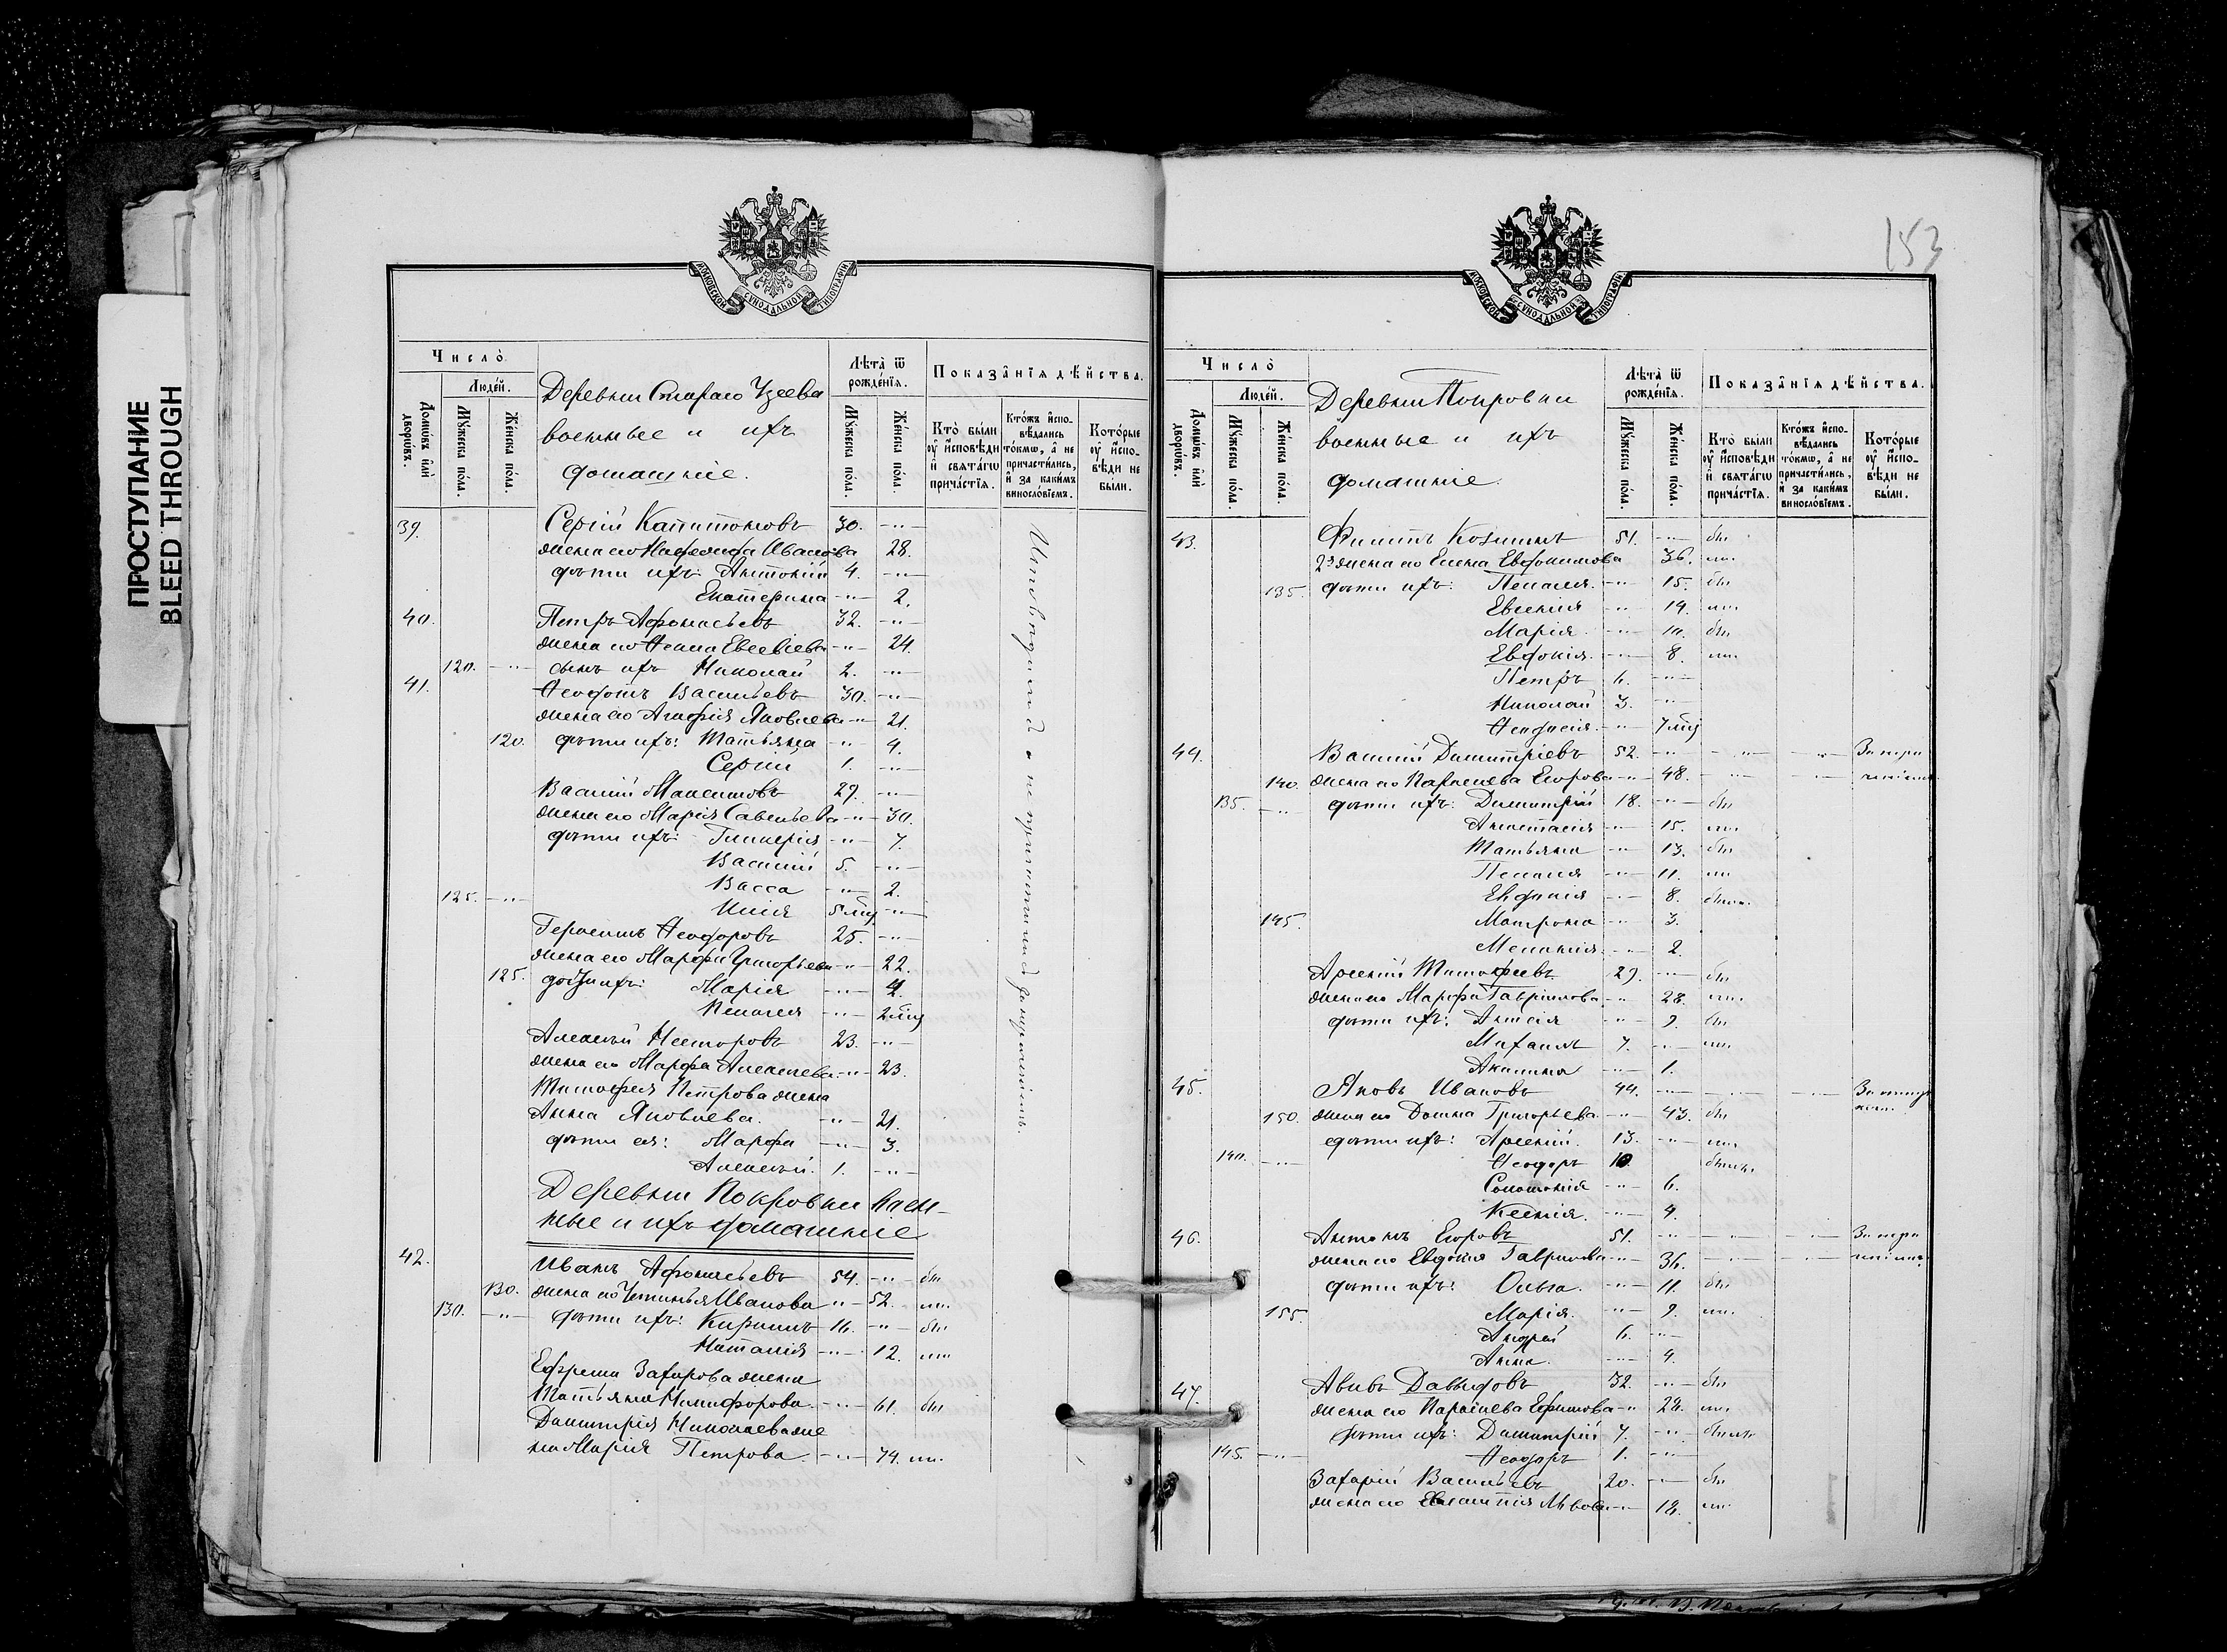 ПРОСТУПАНИЕ
BLEED THROUGH
МОСКОВСКОЙ СѴНОДАЛЬНОЙ ТИПОГРАФІИ
Число̀
Людей.
Домѡвъ и҆лѝ дворѡвъ.
Мꙋжеска пола.
Женска пола.
Деревни Стараго Узеева
военные и ихъ
домашніе.
Лѣта̀ ѿ рожденїѧ.
Мꙋжеска пола.
Женска пола.
Показанїѧ дѣйства.
Кто̀ были ᲂу҆ и҆сповѣди и҆ свѧтагѡ причастїѧ.
Ктожъ и҆сповѣдались токмѡ, а҆ не причастились, и҆ за какимъ винословїемъ.
Которые ᲂу҆ и҆сповѣди не были.
39. Сергій Капитоновъ 30.
жена его Иванова 28.
дѣти ихъ: Антоній 4.
Екатерина 2.
40. Петръ Афонасьевъ 32.
жена его Анна Евсевіева 24.
120. сынъ ихъ Николай 2.
41. Ѳеодотъ Васильевъ 30.
жена его Агафія Яковлева 21.
120. дѣти ихъ: Татьяна 4.
Сергій 1.
Василій Максимовъ 29.
жена его Марія Савельева 30.
дѣти ихъ: Гликерія 7.
Василій 5.
Васса 2.
125. Илія 5 мц
Герасимъ Ѳеодоровъ 25.
жена его Марфа Григорьева 22.
125. дочери ихъ: Марія 4.
Пелагея 2 мц
Алексѣй Несторовъ 23.
жена его Марфа Алексѣева 23.
Тимофея Петрова жена
Анна Яковлева. 21.
дѣти ея: Марфа 3.
Алексѣй. 1.
Деревни Покровки
ные и ихъ домашніе
42. Иванъ Афонасьевъ 54. бы
130. жена его Устинья Иванова 52. ли.
130. дѣти ихъ: Кириллъ 16. бы
Наталія 12. ли
Ефрема Захарова жена
Татьяна Никифорова. 61. бы
Димитрія Николаева же
на Марія Петрова. 74. ли.
153
МОСКОВСКОЙ СѴНОДАЛЬНОЙ ТИПОГРАФІИ
Число̀
Людей.
Домѡвъ и҆лѝ дворѡвъ.
Мꙋжеска пола.
Женска пола.
Деревни Покровки
военные и ихъ
домашніе.
Лѣта̀ ѿ рожденїѧ.
Мꙋжеска пола.
Женска пола.
Показанїѧ дѣйства.
Кто̀ были ᲂу҆ и҆сповѣди и҆ свѧтагѡ причастїѧ.
Ктожъ и҆сповѣдались токмѡ, а҆ не причастились, и҆ за какимъ винословїемъ.
Которые ᲂу҆ и҆сповѣди не были.
43. Филиппъ Козминъ 51. бы
2я жена его Елена Евфимова 36. ли.
135. дѣти ихъ: Пелагея. 15. бы
Евгенія 14. ли.
Марія. 10. бы
Евдокія. 8. ли.
Петръ 6.
Николай 3.
Ѳеодосія. 7 мц
44. Василій Димитріевъ 52.
140. жена его Параскева Егорова 48.
135. дѣти ихъ: Димитрій 18. бы
Анастасія 15. ли.
Татьяна 13. бы
Пелагея 11. ли
Евдокія 8. были.
145. Матрона 3.
Меланія. 2.
Арсеній Тимофеевъ 29. бы
жена его Марфа Гаврилова 28. ли.
дѣти ихъ: Анисія 9. бы
Михаилъ 7. ли.
Акилина 1.
45. Яковъ Ивановъ 44.
150. жена его Домна Григорьева. 43. бы
дѣти ихъ: Арсеній. 13. ли.
140. Ѳеодоръ 10. были.
Соломонія 6.
Ксенія. 4.
46. Антонъ Егоровъ 51.
жена его Евдокія Гаврилова 36.
дѣти ихъ: Ольга. 11. бы
155. Марія. 9. ли.
Андрей 6.
Анна. 4.
47. Авивъ Давыдовъ 32. бы
жена его Параскева Ефимова 28. ли.
дѣти ихъ: Димитрій 7. были
145. Ѳеодоръ 1.
Захарій Васильевъ 20. бы
жена его Львова 18. ли.